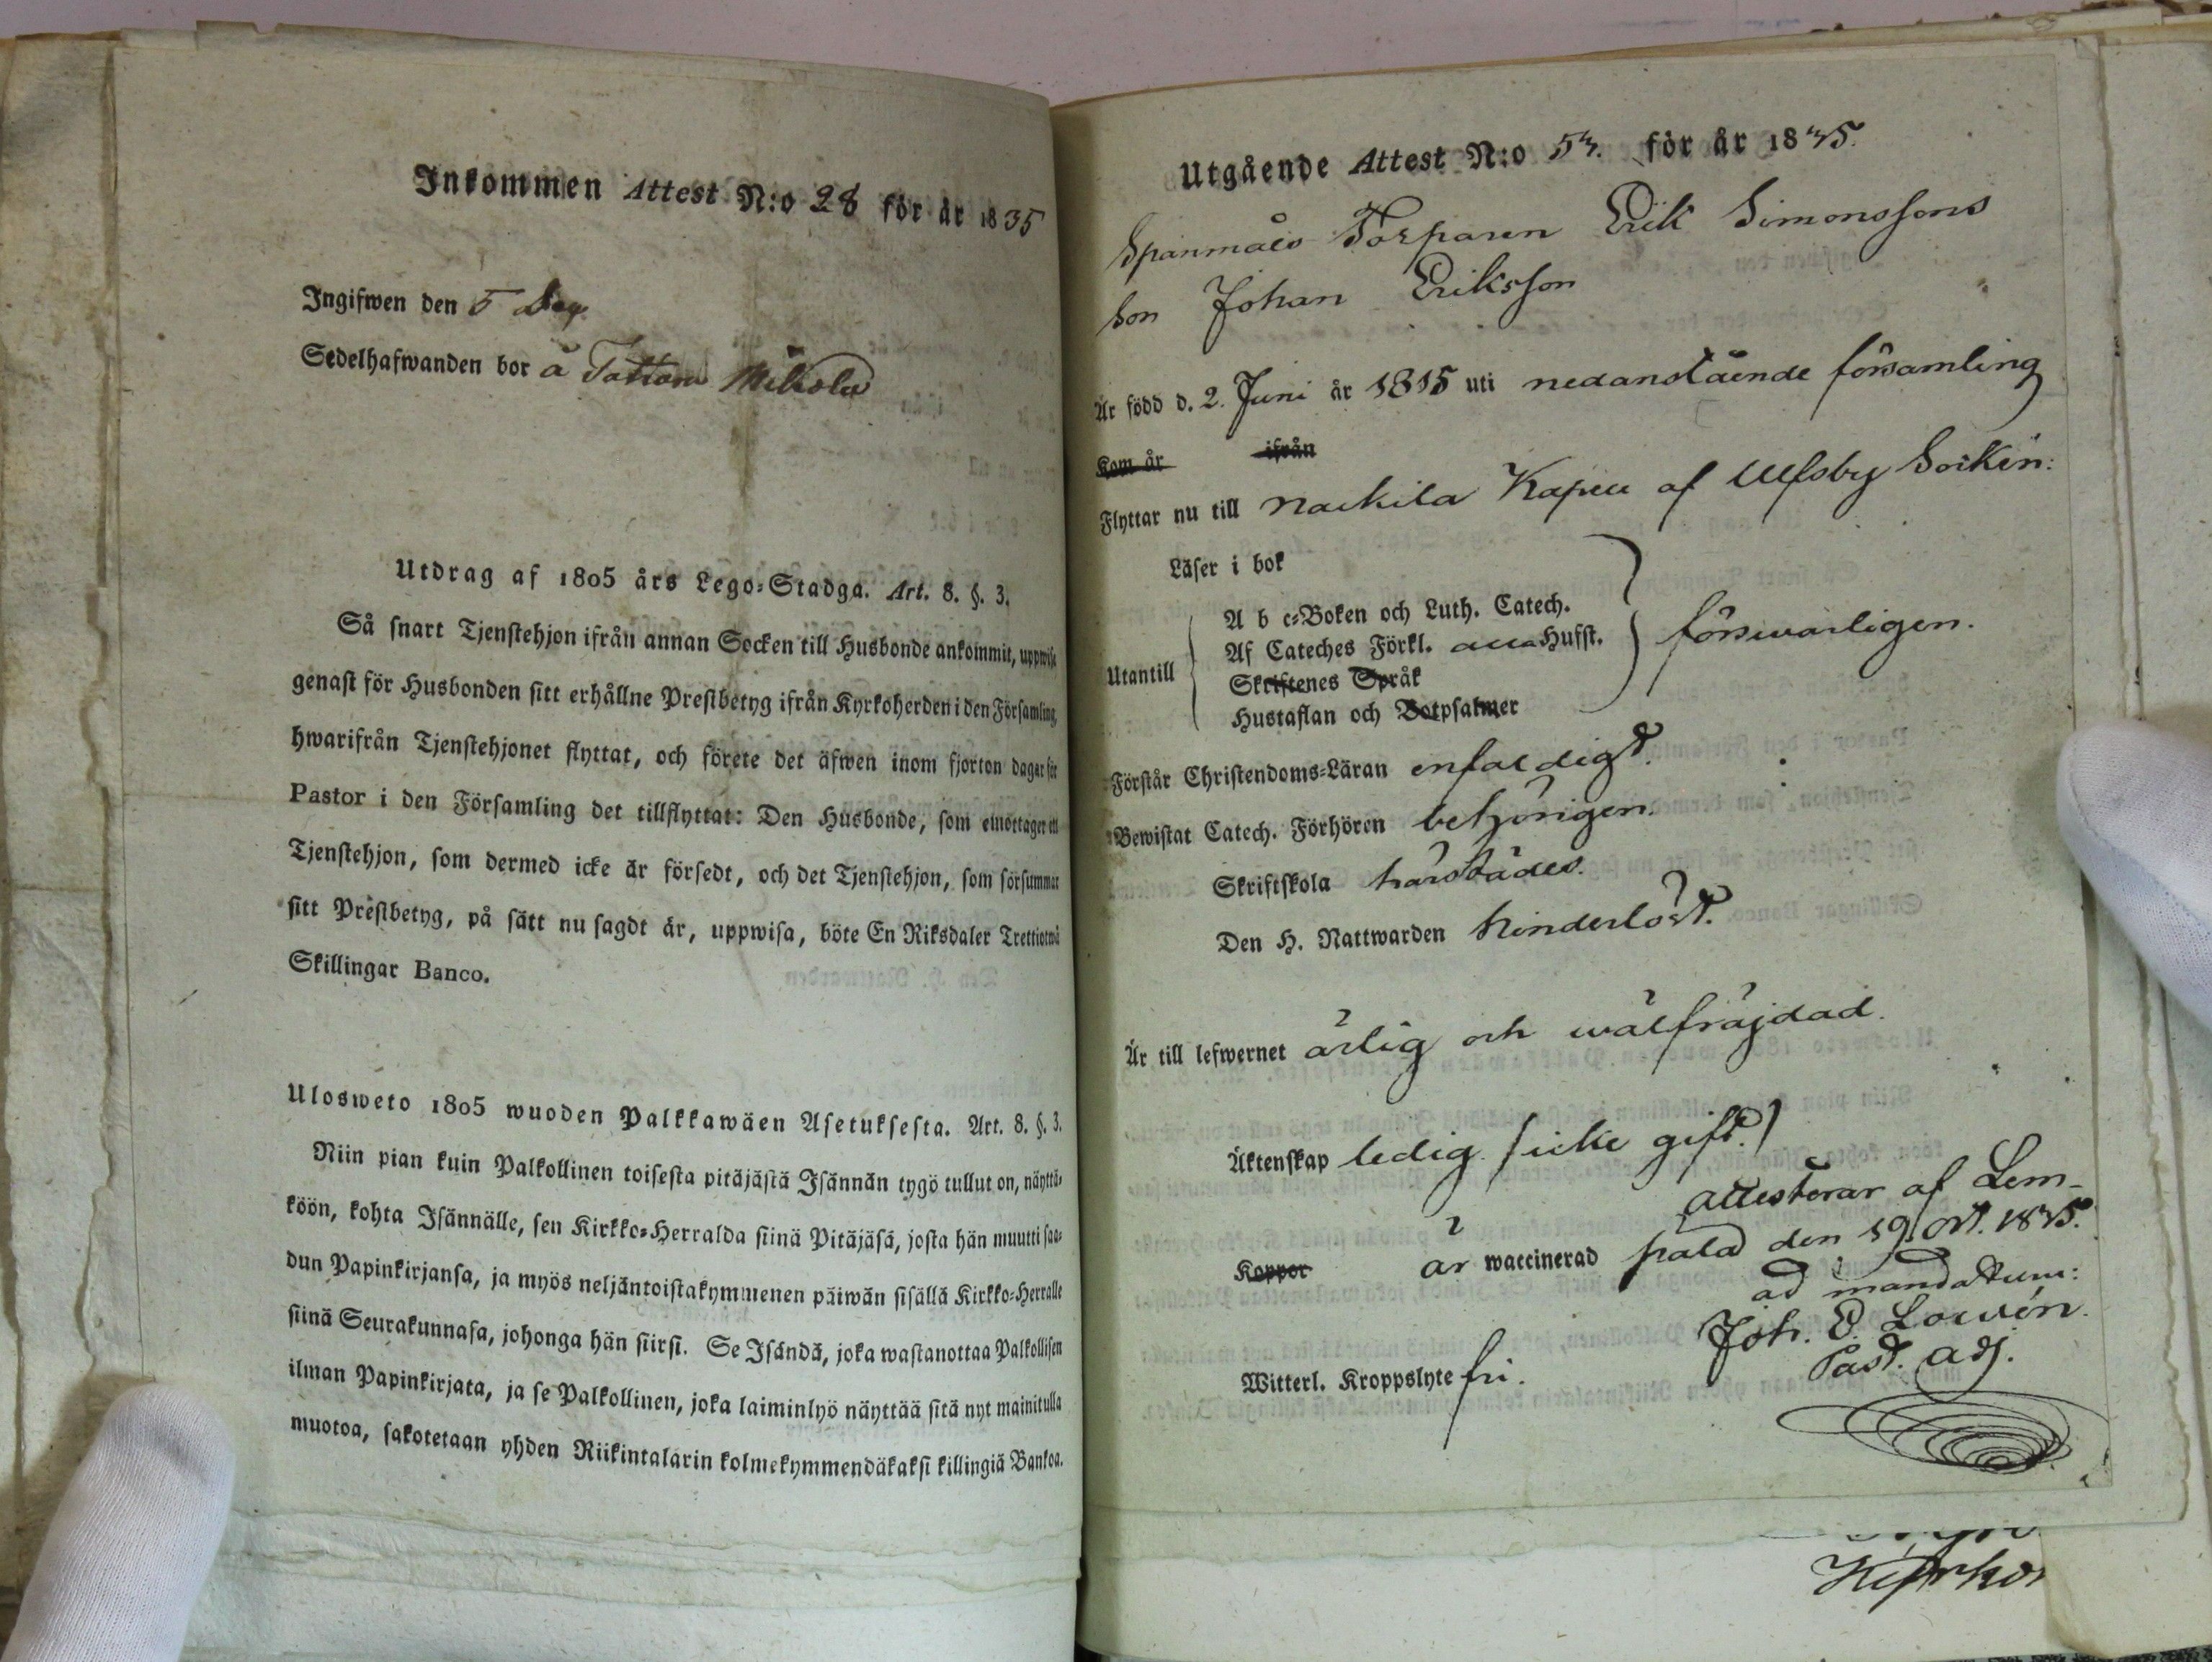 Inkommen Attest N:o 28 för år 1835
Ingifwen den 5
Sedelhafwanden bor å Tattara Mikola
Utdrag af 1805 års Lego-Stadga. Art. 8. §. 3.
Så snart Tjenstehjon ifrån annan Socken till Husbonde ankommit, uppwise
genast för Husbonden sitt erhållne Prestbetyg ifrån Kyrkoherden i den Församling,
hwarifrån Tjenstehjonet flyttat, och förete det äfwen inom fjorton dagar för
Pastor i den Församling det tillflyttat: Den Husbonde, som emottager ett
Tjenstehjon, som dermed icke är försedt, och det Tjenstehjon, som försummar
sitt Prestbetyg, på sätt nu sagdt är, uppwisa, böte En Riksdaler Trettiotwå
Skillingar Banco.
Ulosweto 1805 wuoden Palkkawäen Asetuksesta. Art. 8. §. 3.
Niin pian kuin Palkollinen toisesta pitäjästä Isännän tygö tullut on, näyttä-
köön, kohta Isännälle, sen Kirkko-Herralda siinä Pitäjäsä, josta hän muutti saa-
dun Papinkirjansa, ja myös neljäntoistakymmenen päiwän sisällä Kirkko-Herralle
siinä Seurakunnasa, johonga hän siirsi. Se Isändä, joka wastanottaa Palkollisen
ilman Papinkirjata, ja se Palkollinen, joka laiminlyö näyttää sitä nyt mainitulla
muotoa, sakotetaan yhden Riikintalarin kolmekymmendäkaksi killingiä Bankoa.
Utgående Attest N:o 53. för år 1835.
Spänmäis Torparen Erik Simonssons
Son Johan Eriksson
Är född d. 2. Juni år 1815 uti nedanstående församling
Kom år ifrån
Flyttar nu till Nackila Kapell af Ulfsby Sockn:
Läser i bok
A b c-Boken och Luth. Catech.
Af Cateches Förkl. alla Husst.
Utantill försvarligen.
Skriftenes Språk
Hustaflan och Botpsalmer
Förstår Christendoms-Läran enfaldigt.
Bewistat Catech. Förhören behörigen.
Skriftskola härstädes.
Den H. Nattwarden hinderlöst.
Är till lefwernet ärlig och wälfräjdad.
Äktenskap ledig (icke gift.)
attesterar af Lem-
Koppor är waccinerad pala den 19 Oct. 1835.
ad mandatum:
Joh. E. Lowén.
Witterl. Kroppslyte fri. Past. adj.